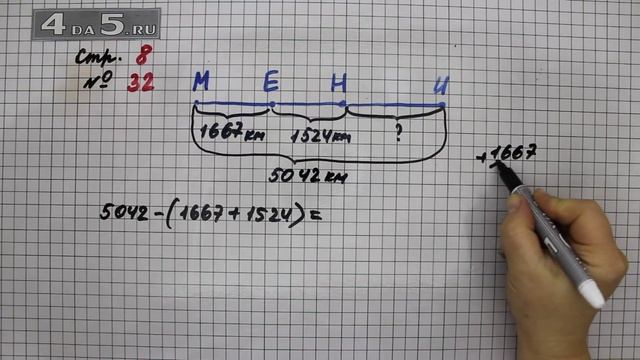 4 ДА 5.RU
Стр. 8
№ 32
М Е Н И
1667 км 1524 км ?
5042 км
+1667
5042-(1667+1524)=